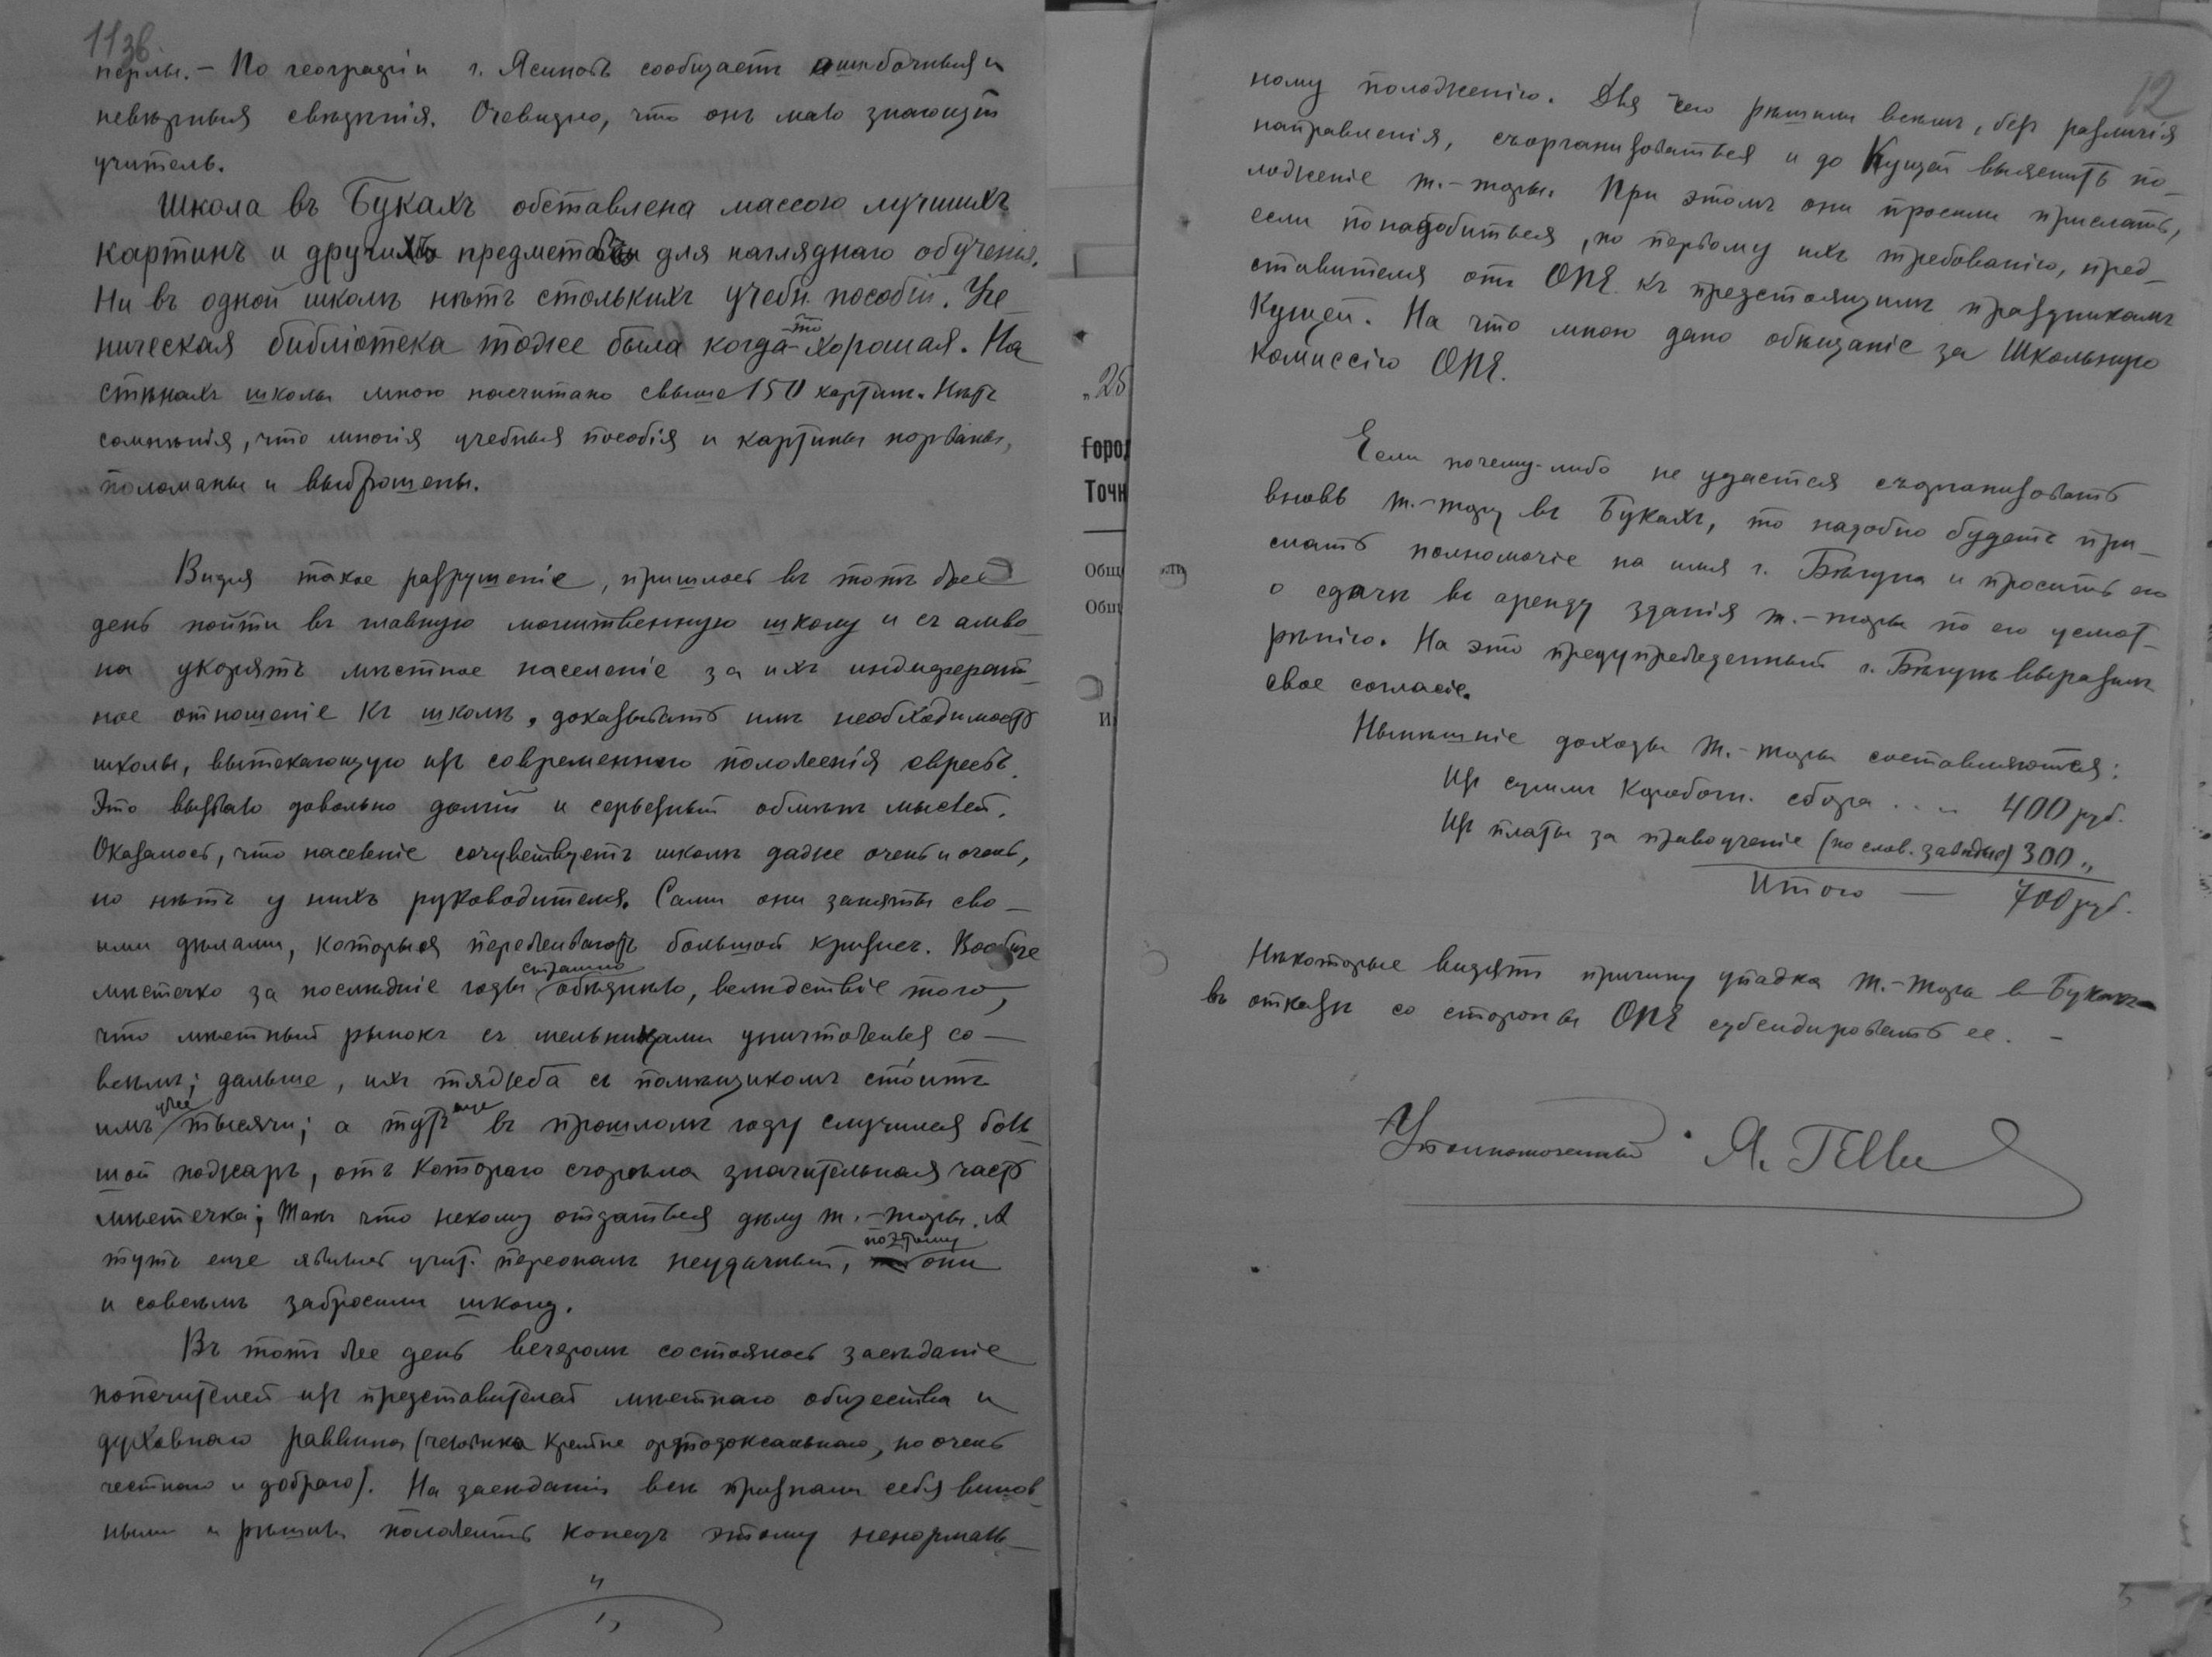 113б.
перлы. – По географіи г. Ясиновъ сообщаетъ ошибочныя и
невѣрныя свѣдѣнія. Очевидно, что онъ мало знающій
учитель.
Школа въ Букахъ обставлена массою лучшихъ
картинъ и другихъ предметовъ для нагляднаго обученія.
Ни въ одной школѣ нѣтъ столькихъ учебн. пособій. Уче-
ническая библіотека тоже была когда-то хорошая. На
стѣнахъ школы мною насчитано свыше 150 картин. Нѣтъ
сомнѣнія, что многія учебныя пособія и картины порваны,
поломаны и выброшены.
Видя такое разрушеніе, пришлось въ тотъ же
день пойти въ главную молитвенную школу и съ амво-
на укорять мѣстное населеніе за ихъ индиферент-
ное отношеніе къ школѣ, доказывать имъ необходимость
школы, вытекающую изъ современнаго положенія евреевъ.
Это вызвало довольно долгій и серьезный обмѣнъ мыслей.
Оказалось, что населеніе сочувствуетъ школѣ даже очень и очень,
но нѣтъ у нихъ руководителя. Сами они заняты сво-
ими дѣлами, которыя переживаютъ большой кризисъ. Вообще
мѣстечко за послѣдніе годы страшно обѣднѣло, вслѣдствіе того,
что мѣстный рынокъ съ мельницами уничтожился со-
всѣмъ; дальше, ихъ тяжба съ помѣщикомъ стóитъ
имъ уже тысячи; а тутъ еще въ прошломъ году случился боль-
шой пожаръ, отъ котораго сгорѣла значительная часть
мѣстечка; такъ что некому отдаться дѣлу т.-торы. А
тутъ еще явился учит. персоналъ неудачный, поэтому они
и совсѣмъ забросили школу.
Въ тотъ же день вечеромъ состоялось засѣданіе
попечителей изъ представителей мѣстнаго общества и
духовнаго раввина (человѣка крайне ортодоксальнаго, но очень
честнаго и добраго). На засѣданіи всѣ признали себя винов-
ными и рѣшили положить конецъ этому ненормаль-
12
ному положенію. Для чего рѣшили всѣмъ, безъ различія
направленія, съорганизоваться и до Кущей выяснить по-
ложеніе т.-торы. При этомъ они просили прислать,
если понадобиться, по первому ихъ требованію, пред-
ставителя отъ ОПЕ. къ предстоящимъ праздникамъ
Кущей. На что мною дано обѣщаніе за Школьную
комиссію ОПЕ.
Если почему-либо не удастся съорганизовать
вновь т.-тору въ Букахъ, то надобно будетъ при-
слать полномочіе на имя г. Бѣгуна и просить его
о сдачѣ въ аренду зданія т.-торы по его усмот-
рѣнію. На это предупрежденный г. Бѣгунъ выразилъ
свое согласіе.
Нынѣшніе доходы т.-торы составляются:
Изъ суммъ Коробочн. сбора . . . . 400 руб.
Изъ платы за правоученіе (по слов. завѣдыв) 300 „
Итого — 700 руб.
Нѣкоторые видятъ причину упадка т.-торы въ Букахъ
въ отказѣ со стороны ОПЕ субсидировать ее. –
Уполномоченный
„25
Горо
Точн
Общ
Общ
или
И